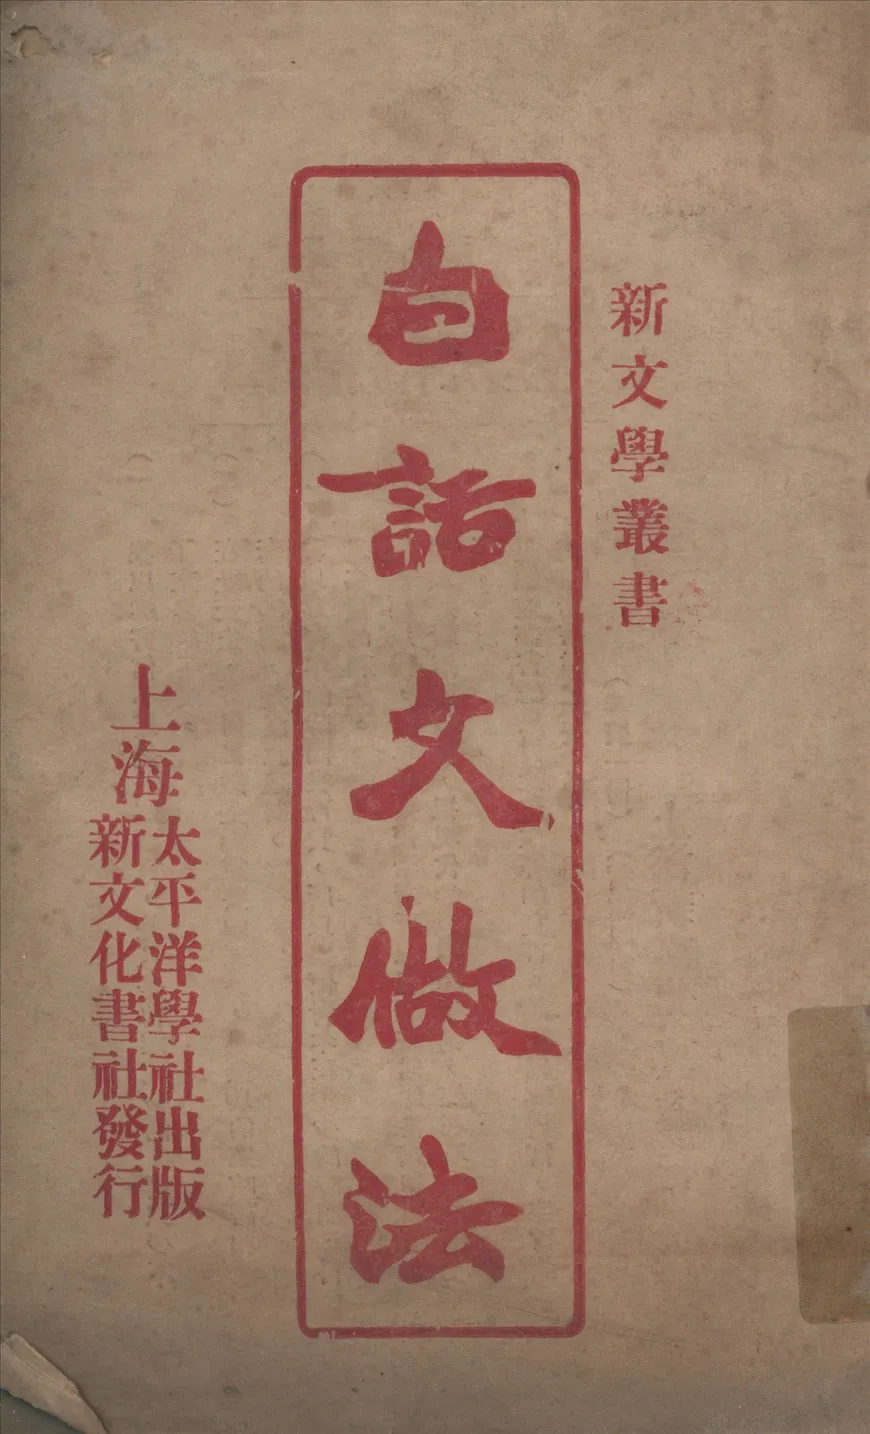 新文學叢書
白話文做法
上海
太平洋學社出版
新文化書社發行